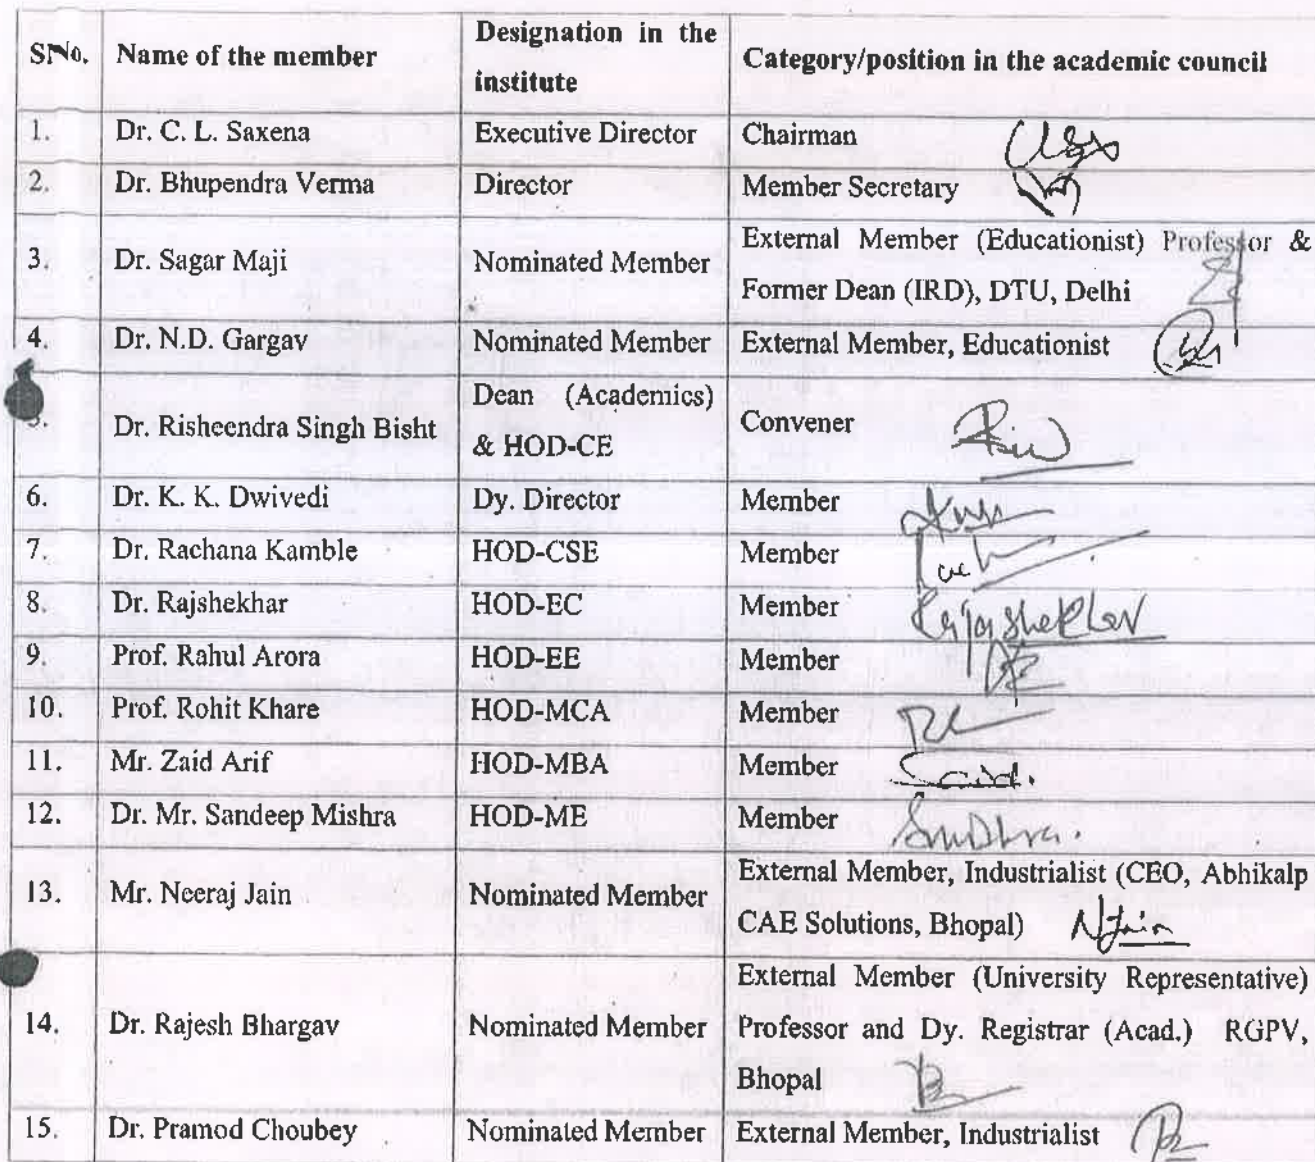 SNo. Name of the member Designation in the institute Category/position in the academic council
1. Dr. C. L. Saxena Executive Director Chairman
2. Dr. Bhupendra Verma Director Member Secretary
3. Dr. Sagar Maji Nominated Member External Member (Educationist) Professor &
Former Dean (IRD), DTU, Delhi
4. Dr. N.D. Gargav Nominated Member External Member, Educationist
5. Dr. Risheendra Singh Bisht Dean (Academics) & HOD-CE Convener
6. Dr. K. K. Dwivedi Dy. Director Member
7. Dr. Rachana Kamble HOD-CSE Member
8. Dr. Rajshekhar HOD-EC Member Rajashekhar
9. Prof. Rahul Arora HOD-EE Member
10. Prof. Rohit Khare HOD-MCA Member
11. Mr. Zaid Arif HOD-MBA Member
12. Dr. Mr. Sandeep Mishra HOD-ME Member
13. Mr. Neeraj Jain Nominated Member External Member, Industrialist (CEO, Abhikalp
CAE Solutions, Bhopal) NJain
14. Dr. Rajesh Bhargav Nominated Member External Member (University Representative)
Professor and Dy. Registrar (Acad.) RGPV,
Bhopal
15. Dr. Pramod Choubey Nominated Member External Member, Industrialist